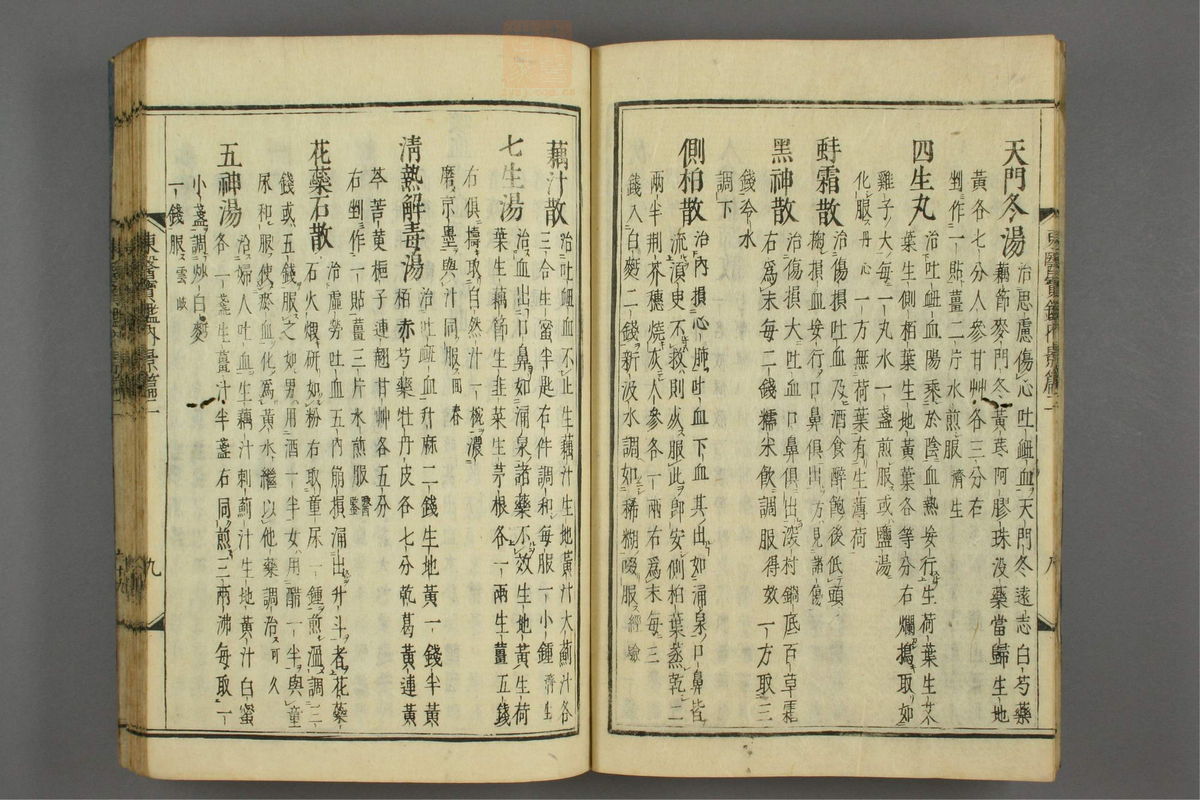 天門冬湯 治思慮傷心吐衄血天門冬遠志白芍藥
藕節麥門冬黃芪阿膠珠沒藥當歸生地
黃各七分人參甘艸各三分右
剉作一貼薑二片水煎服 濟生
四生丸 治吐衄血陽乘於陰血熱妄行生荷葉生艾
葉生側栢葉生地黃葉各等分右爛搗取如
雞子大每一丸水一盞煎服或鹽湯
化服 丹心 一方無荷葉有生薄荷
蚌霜散 治傷損吐血及酒食醉飽後低頭
掬損血妄行口鼻俱出 方見諸傷
黑神散 治傷損大吐血口鼻俱出滚村鍋底百草霜
右爲末每二錢糯米飮調服得效 一方取三
錢冷水
調下
側柏散 治內損心肺吐血下血其出如涌泉口鼻皆
流湏史不救則死服此卽安側柏葉蒸乾二
兩半荆芥穗燒灰人參各一兩右爲末每三
錢入白麪二錢新汲水調如稀糊啜服 經驗
東醫寶鑑內景篇二
藕汁散 治吐衄血不止生藕汁生地黃汁大薊汁各
三合生蜜半匙右件調和每服一小鍾 濟生
七生湯 治血出口鼻如涌泉諸藥不效生地黃生荷
葉生藕節生韭菜生茅根各一兩生薑五錢
右俱擣取自然汁一椀濃
磨京墨與汁同服 回春
淸熱解毒湯 治吐衄血升麻二錢生地黃一錢半黃
栢赤芍藥牡丹皮各七分乾葛黃連黃
芩苦黃梔子連翹甘艸各五分
右剉作一貼薑三片水煎服 醫鑑
花藥石散 治虛勞吐血五內崩損涌出升斗者花藥
石火煆硏如粉右取童尿一鍾煎溫調三
錢或五錢服之如男用酒一半女用醋一半與童
尿和服使瘀血化爲黃水繼以他藥調治 可久
五神湯 治婦人吐血生藕汁刺薊汁生地黃汁白蜜
各一盞生薑汁半盞右同煎三兩沸每取一
小盞調炒白麪
一錢服 雲岐
東醫寶鑑內景篇二
九